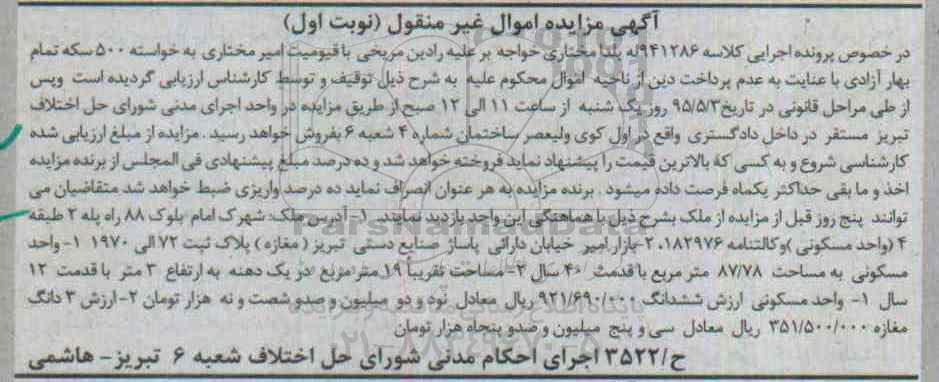 آگهی مزایده اموال غیر منقول (نوبت اول)
در خصوص پرونده اجرایی کلاسه ۹۴۱۲۸۶له یلدا مختاری خواجه بر علیه رادین مریخی با قیومیت امیر مختاری به خواسته ۵۰۰ سکه تمام
بهار آزادی با عنایت به عدم پرداخت دین از ناحیه اموال محکوم علیه به شرح ذیل توقیف و توسط کارشناس ارزیابی گردیده است وپس
از طی مراحل قانونی در تاریخ۹۵/۵/۳ روز یک شنبه از ساعت ۱۱ الی ۱۲ صبح از طریق مزایده در واحد اجرای مدنی شورای حل اختلاف
تبریز مستقر در داخل دادگستری واقع در اول کوی ولیعصر ساختمان شماره ۴ شعبه ۶ بفروش خواهد رسید . مزایده از مبلغ ارزیابی شده
کارشناسی شروع و به کسی که بالاترین قیمت را پیشنهاد نماید فروخته خواهد شد و ده درصد مبلغ پیشنهادی فی المجلس از برنده مزایده
اخذ و ما بقی حداکثر یکماه فرصت داده میشود . برنده مزایده به هر عنوان انصراف نماید ده درصد واریزی ضبط خواهد شد متقاضیان می
توانند پنج روز قبل از مزایده از ملک بشرح ذیل با هماهنگی این واحد بازدید نمایند. ۱- آدرس ملک: شهرک امام بلوک ۸۸ راه پله ۲ طبقه
۴ (واحد مسکونی )وکالتنامه ۲،۱۸۲۹۷۶-بازار امیر خیابان دارائی پاساژ صنایع دستی تبریز ( مغازه ) پلاک ثبت ۷۲ الی ۱۹۷۰ ۱-واحد
مسکونی به مساحت ۸۷/۷۸ متر مربع با قدمت ۴۰ سال ۲- مساحت تقریباً ۱۹ متر مربع در یک دهنه به ارتفاع ۳ متر با قدمت ۱۲
سال ۱- واحد مسکونی ارزش ششدانگ ۹۲۱/۶۹۰/۰۰۰ ریال معادل نود و دو میلیون و صدو شصت و نه هزار تومان ۲-ارزش ۳ دانگ
مغازه ۳۵۱/۵۰۰/۰۰۰ ریال معادل سی و پنج میلیون و صدو پنجاه هزار تومان
ح/۳۵۲۲ اجرای احکام مدنی شورای حل اختلاف شعبه ۶ تبریز- هاشمی
ParsNamadData